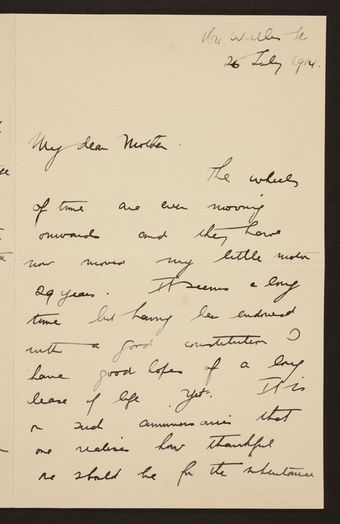 26 July 1904.
My dear Mother
The wheels
of time are ever moving
onwards and they have
now moved my little motor
29 years. It seems a long
time but having been endowed
with a good constitution I
have good hopes of a long
lease of life yet. It is
on such anniversaries that
one realises how thankful
we should be for the inheritance